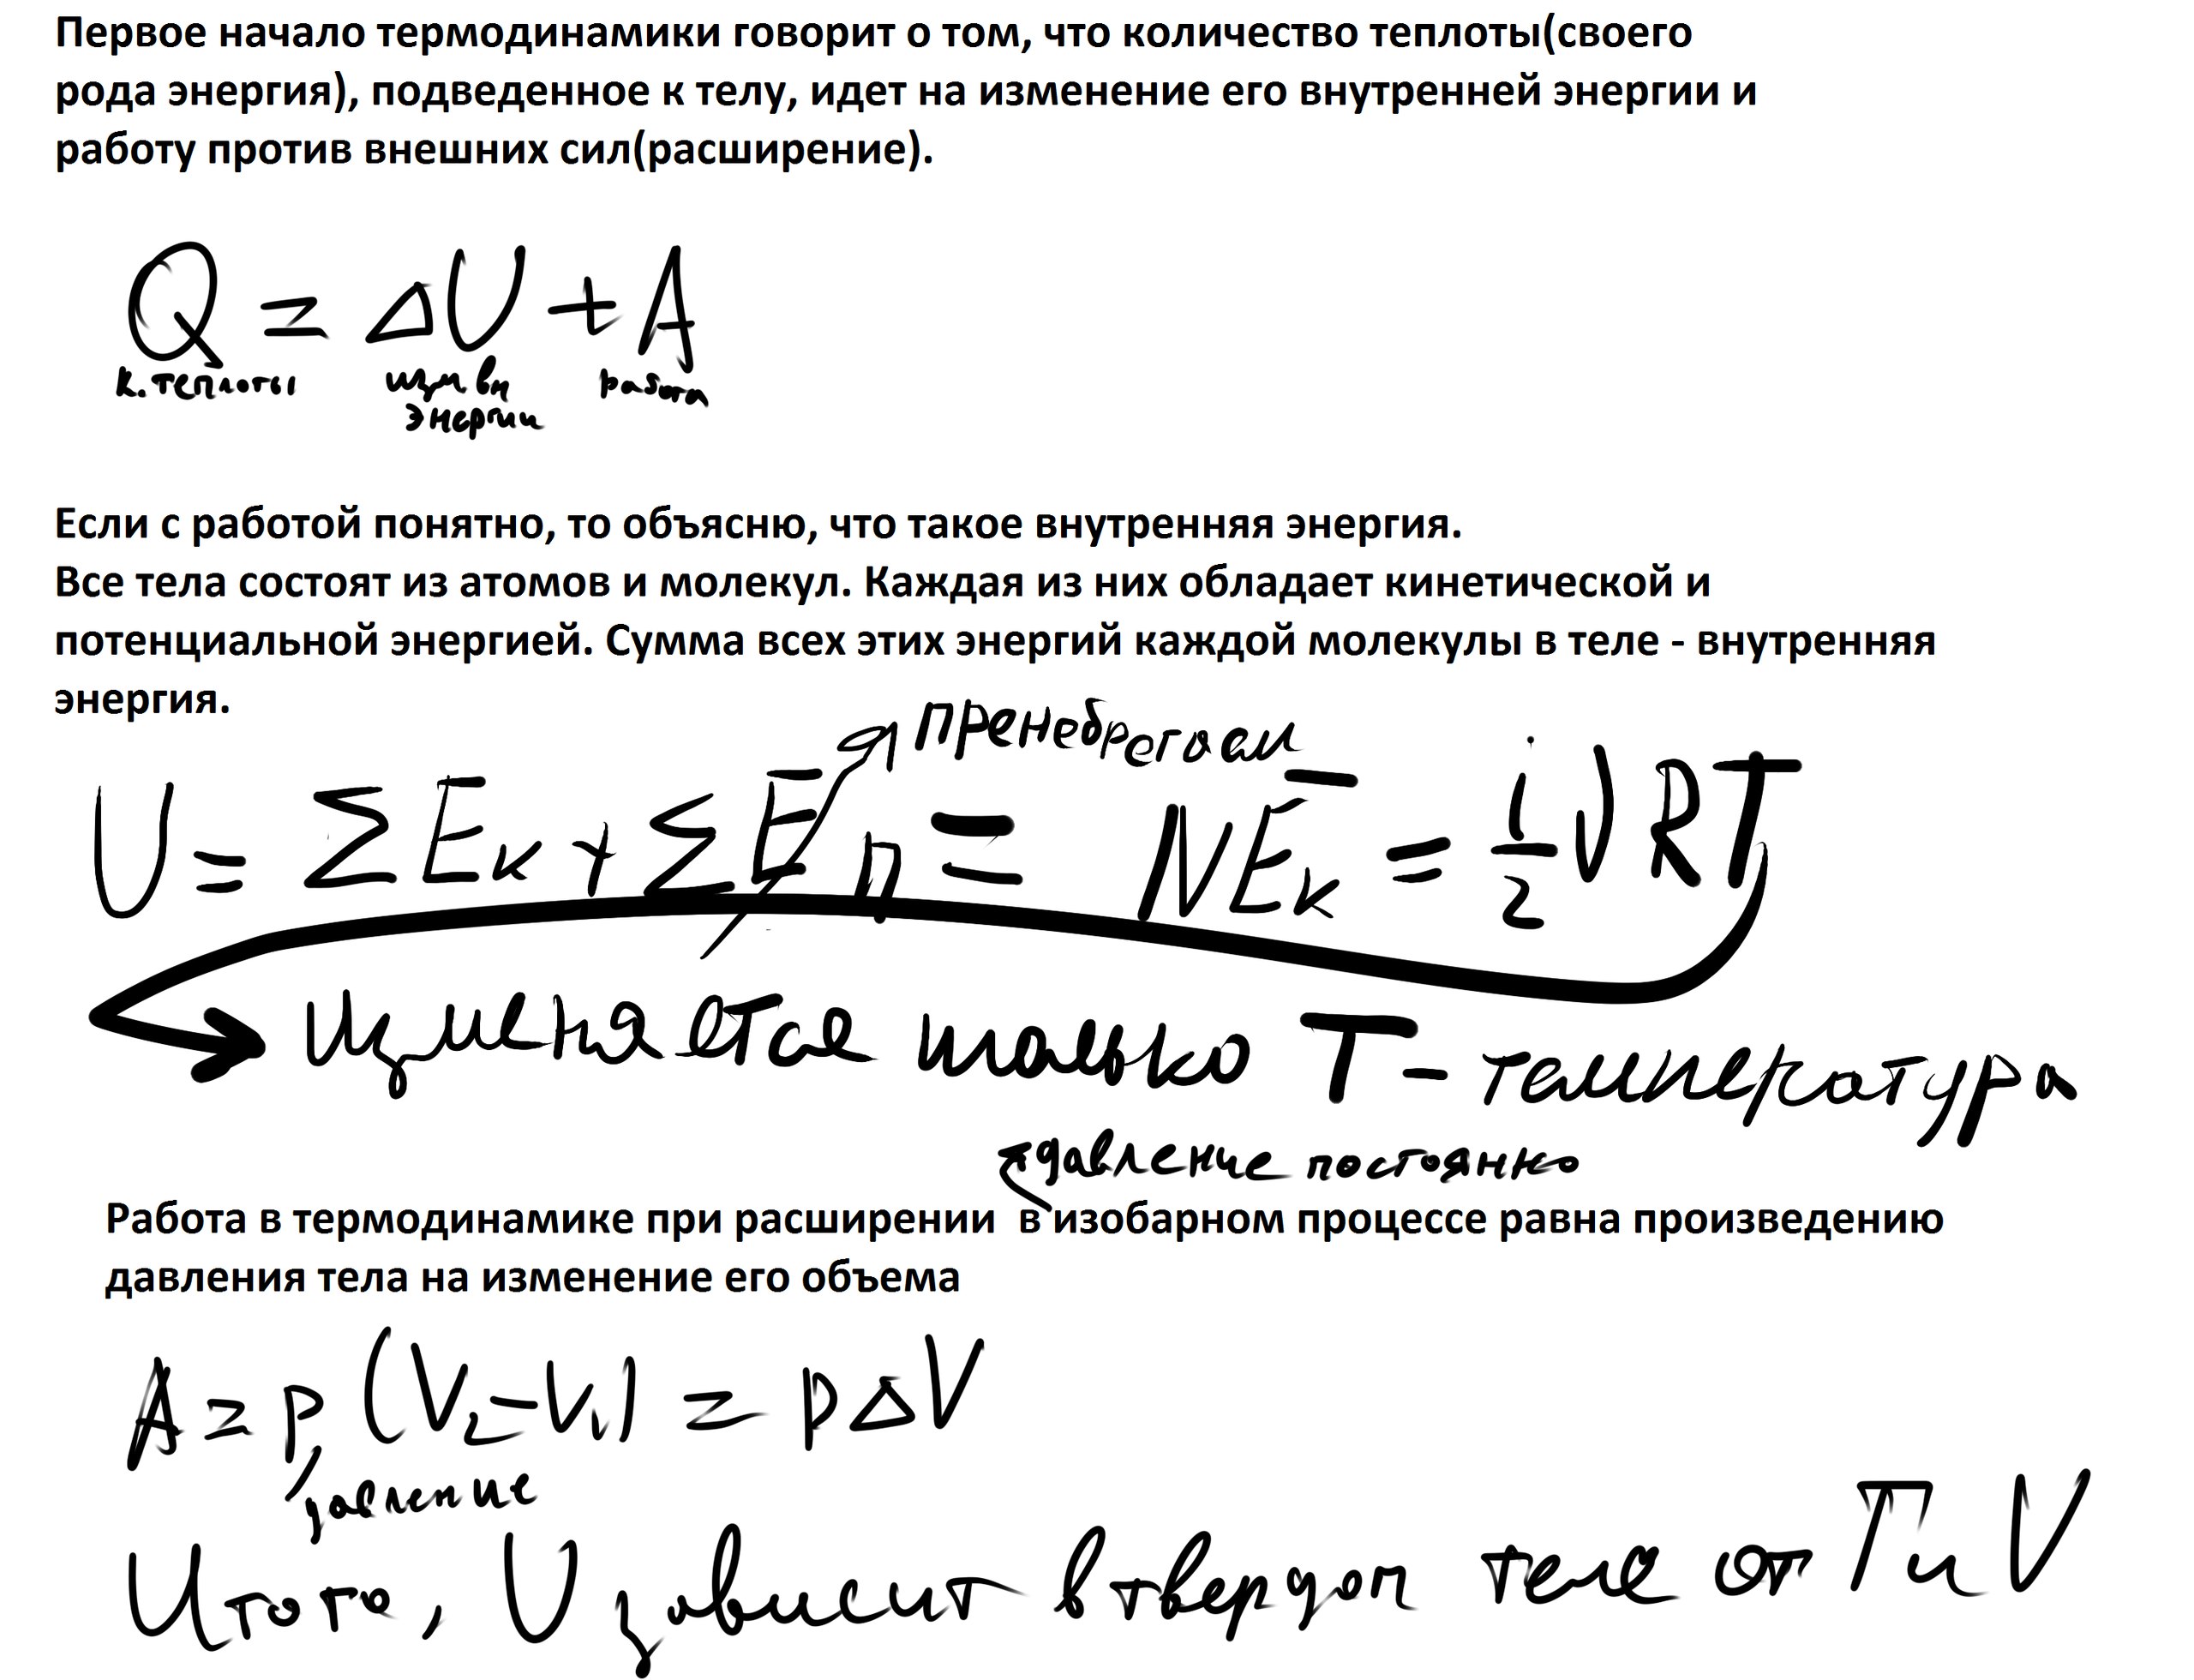 Первое начало термодинамики говорит о том, что количество теплоты(своего
рода энергия), подведенное к телу, идет на изменение его внутренней энергии и
работу против внешних сил(расширение).
Q = ΔU + A
к. теплоты изм вн работа
энергии
Если с работой понятно, то объясню, что такое внутренняя энергия.
Все тела состоят из атомов и молекул. Каждая из них обладает кинетической и
потенциальной энергией. Сумма всех этих энергий каждой молекулы в теле - внутренняя
энергия.
пренебрегаем
U = ΣE̅к + ΣE̅п = NE̅к = i/2 νRT
изменяется только T - температура
давление постоянно
Работа в термодинамике при расширении в изобарном процессе равна произведению
давления тела на изменение его объема
A = p (V₂ - V₁) = pΔV
давление
Итого, U зависит в твердом теле от T и V